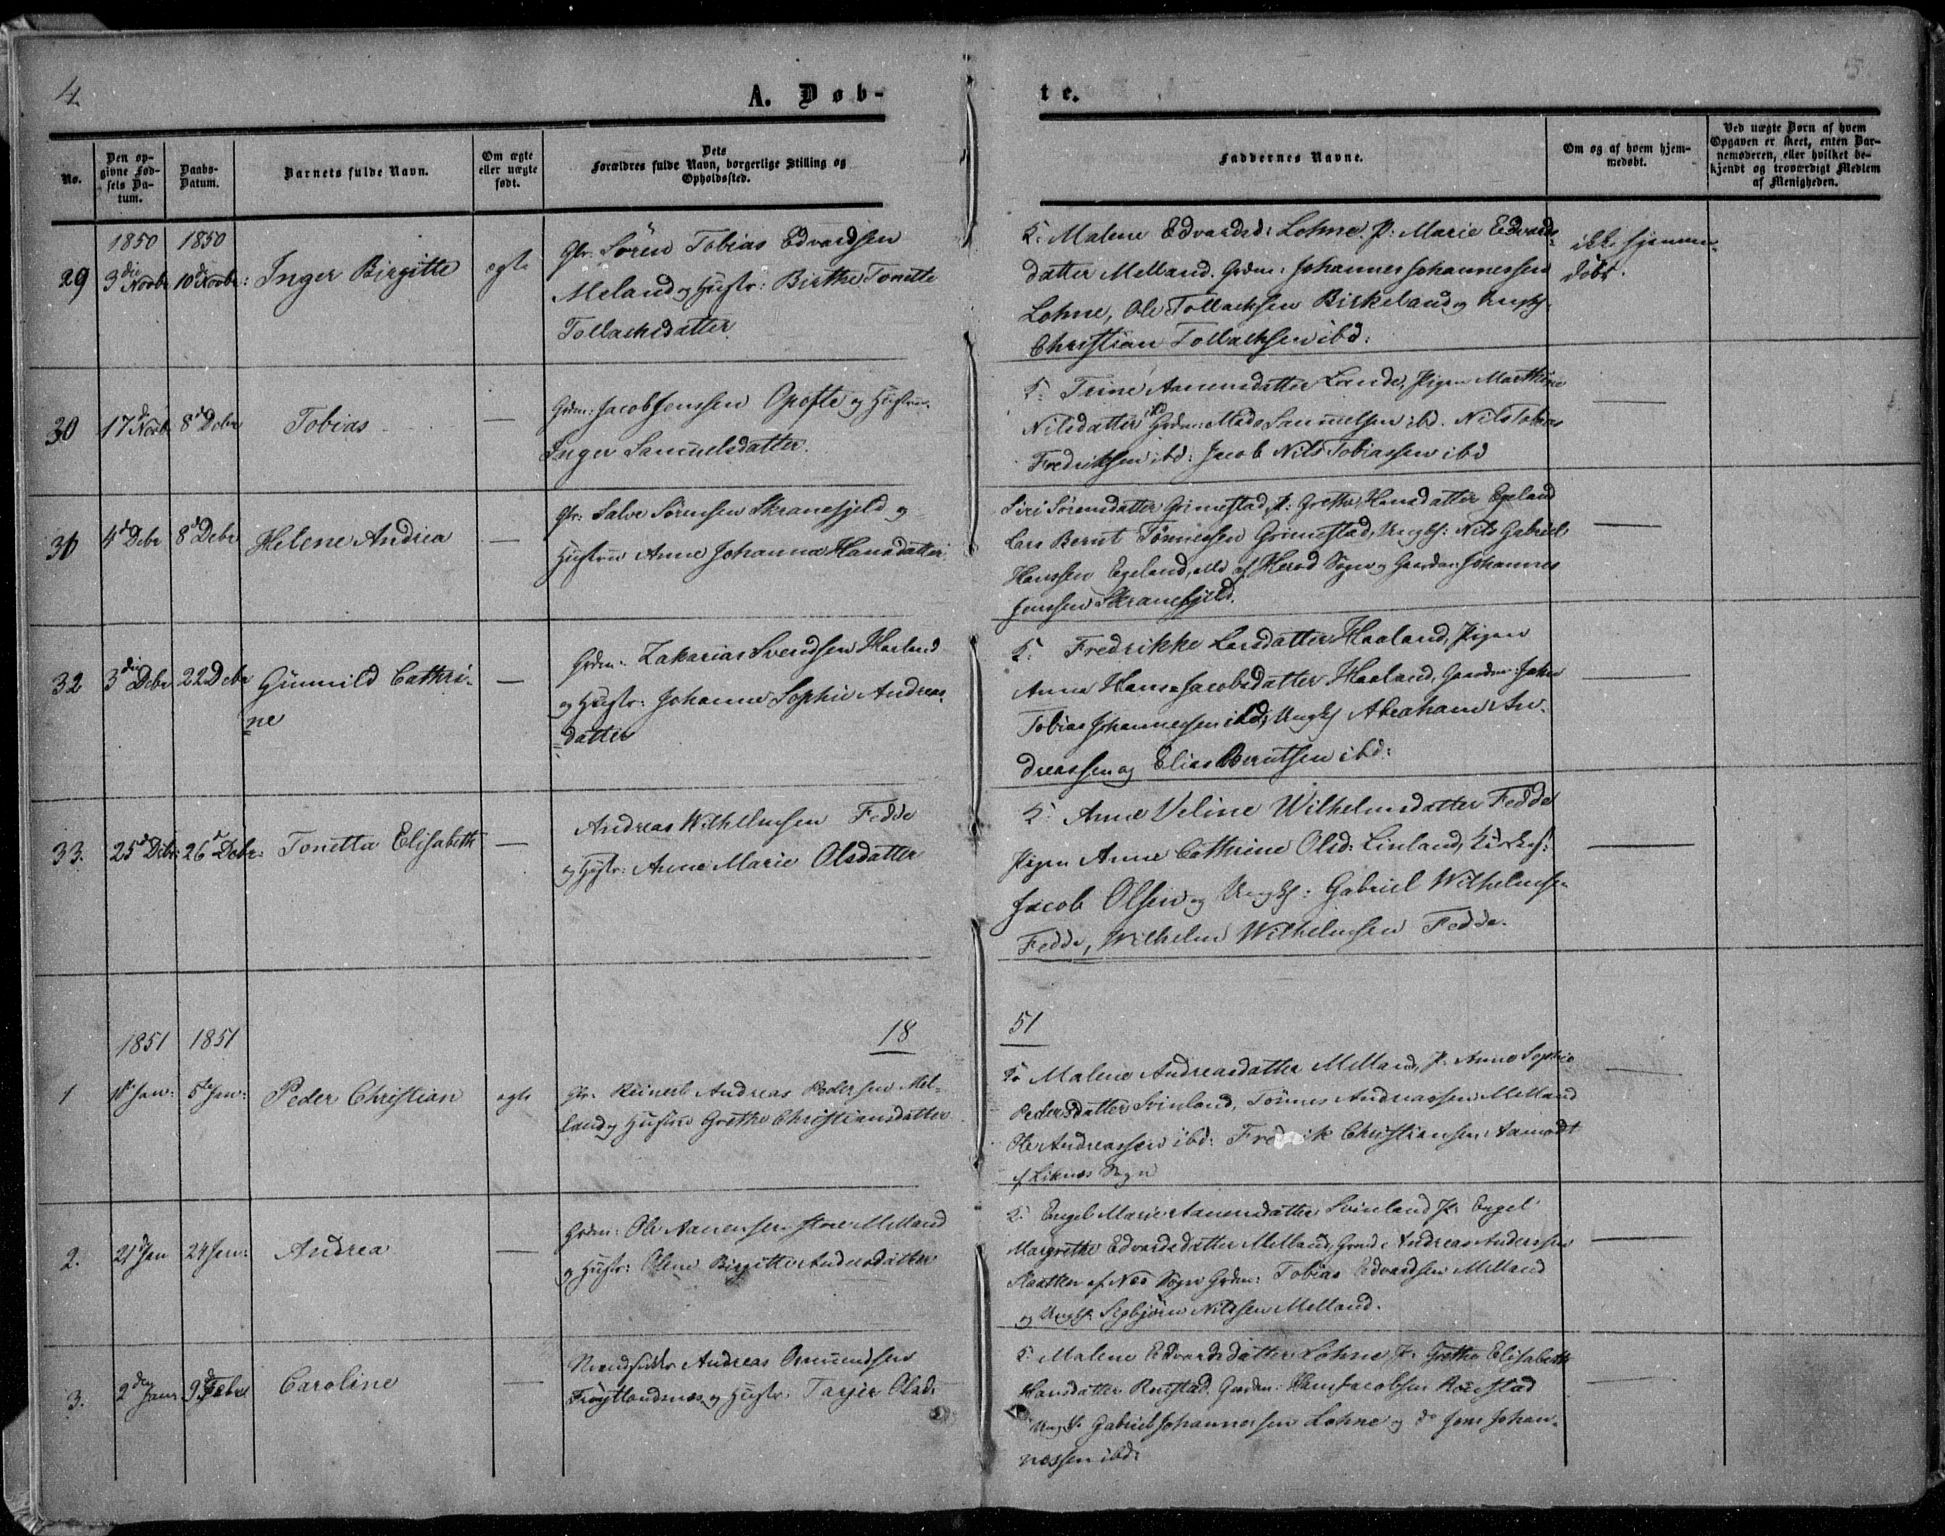 4
A. Døb-
te.
5
No.
Den op-
givne Fød-
sels Da-
tum.
Daabs-
Datum.
Barnets fulde Navn.
Om ægte
eller uægte
født.
Dets
Forældres fulde Navn, borgerlige Stilling og
Opholdssted.
Faddernes Navne.
Om og af hvem hjem-
medøbt.
Ved uægte Børn af hvem
Opgaven er skeet, enten Bar-
nemoderen, eller hvilket be-
kjendt og troværdigt Medlem
af Menigheden.
1850 1850
29 3die Novbr 10d Novbr: Inger Birgitte ægte
Gbr: Sören Tobias Edvardsen
Meland og Hustr: Birthe Tonette
Tollachsdatter
K: Malene Edvardsd: Lohne. P: Marie Edvards-
datter Melland. Grdm: Johannes Johannessen
Lohne, Ole Tollachsen Birkeland og Ungk.
Christian Tollachsen ibd:
ikke hjemme-
døbt.
30 17d Novbr 8d Debr Tobias —
Grdm: Jacob Jenssen Opofte og Hustrue
Inger Samuelsdatter.
K: Trine Aanensdatter Lande, Pigen Marthine
Nilsdatter ibd Grdm: Mads Samuelsen ibd. Nils Tobias
Fredriksen ibd: Jacob Nils Tobiassen ibd
31 4d Debr 8d Debr Helene Andrea —
Gbr: Salve Sörensen Skranefjeld og
Hustrue Anne Johanna Hansdatter
Siri Sörensdatter Grimestad, P: Grethe Hansdatter Egeland
Lars Bernt Tönnessen Grimestad, Ungk: Nils Gabriel
Hanssen Egeland, alle af Herad Sogn og Gaardm: Johannes
Jenssen Skranefjeld.
32 3die Debr 22 Debr Gunnild Cathri-
ne —
Grdm: Zakarias Svendsen Haaland
og Hustr: Johanne Sophie Andreas-
datter
K: Fredrikke Larsdatter Haaland, Pigen
Anne Hans Jacobsdatter Haaland, Gaardm: John
Tobias Johannessen ibd; Ungk Abraham An-
dreassen og Elias Berntsen ibd:
33. 25d Debr: 26d Debr: Tonetta Elisabeth —
Andreas Wilhelmsen Fedde
og Hustr: Anne Marie Olsdatter
K: Anne Veline Wilhelmsdatter Fedde
Pigen Anne Cathrine Olsd: Linland, Kirkes:
Jacob Olsen og Ungk: Gabriel Wilhelmsen
Fedde, Wilhelm Wilhelmsen Fedde.
1851 1851
18
51
1 1ste Jan: 5te Jan: Peder Christian ægte
Gbr: Reinert Andreas Pedersen Mel-
land og Hustru Grethe Christiansdatter
K: Malene Andreasdatter Melland, P: Anne Sophie
Pedersdatter Svinland, Tönnes Andreassen Melland
Ole Andreassen ibd: Fredrik Christiansen Aamodt
af Liknes Sogn
2. 21d Jan 24 Jan: Andrea —
Grdm: Ole Aanensen store Melland
og Hustr: Olene Birgitte Andersdatter
K: Engel Marie Aanensdatter Svinland P: Engel
Margrethe Edvardsdatter Melland, Grdm: Andreas Anderssen
af Nes Sogn Grdm: Tobias Edvardsen Melland
og Ungk: Asbjörn Nilssen Melland.
3. 2den Janr 9d Febr Caroline
Andreas Osmundsen
Frøytlandnes og Hustr: Tarjer Olsd:
K: Malene Edvardsdatter Lohne P: Grethe Elisabeth
Hansdatter Rørstad, Gaardm: Hans Jacobsen Rörstad
Ungk: Gabriel Johannessen Lohne og do Jens Johan-
nessen ibd: